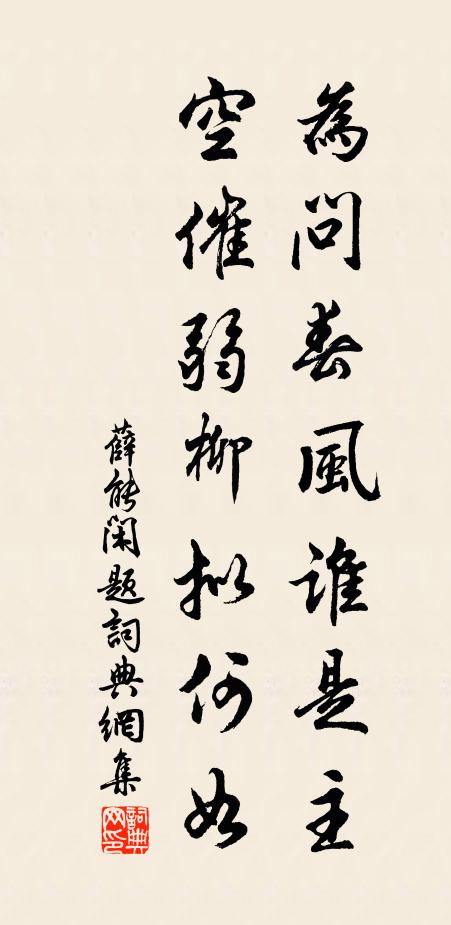 為問春風誰是主
空催弱柳擬何如
薛能閑題詞典網集
詞典網印